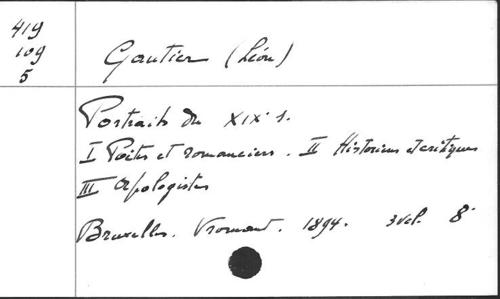 419
109
5
Gautier (Léon)
Portraits du XIXe s.
I Poètes et romanciers. II Historiens et critiques
III Apologistes
Bruxelles. Vromant. 1894. 3 vol. 8°